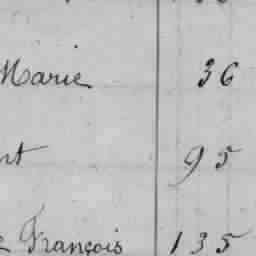 Marie 36
nt 95
François 135